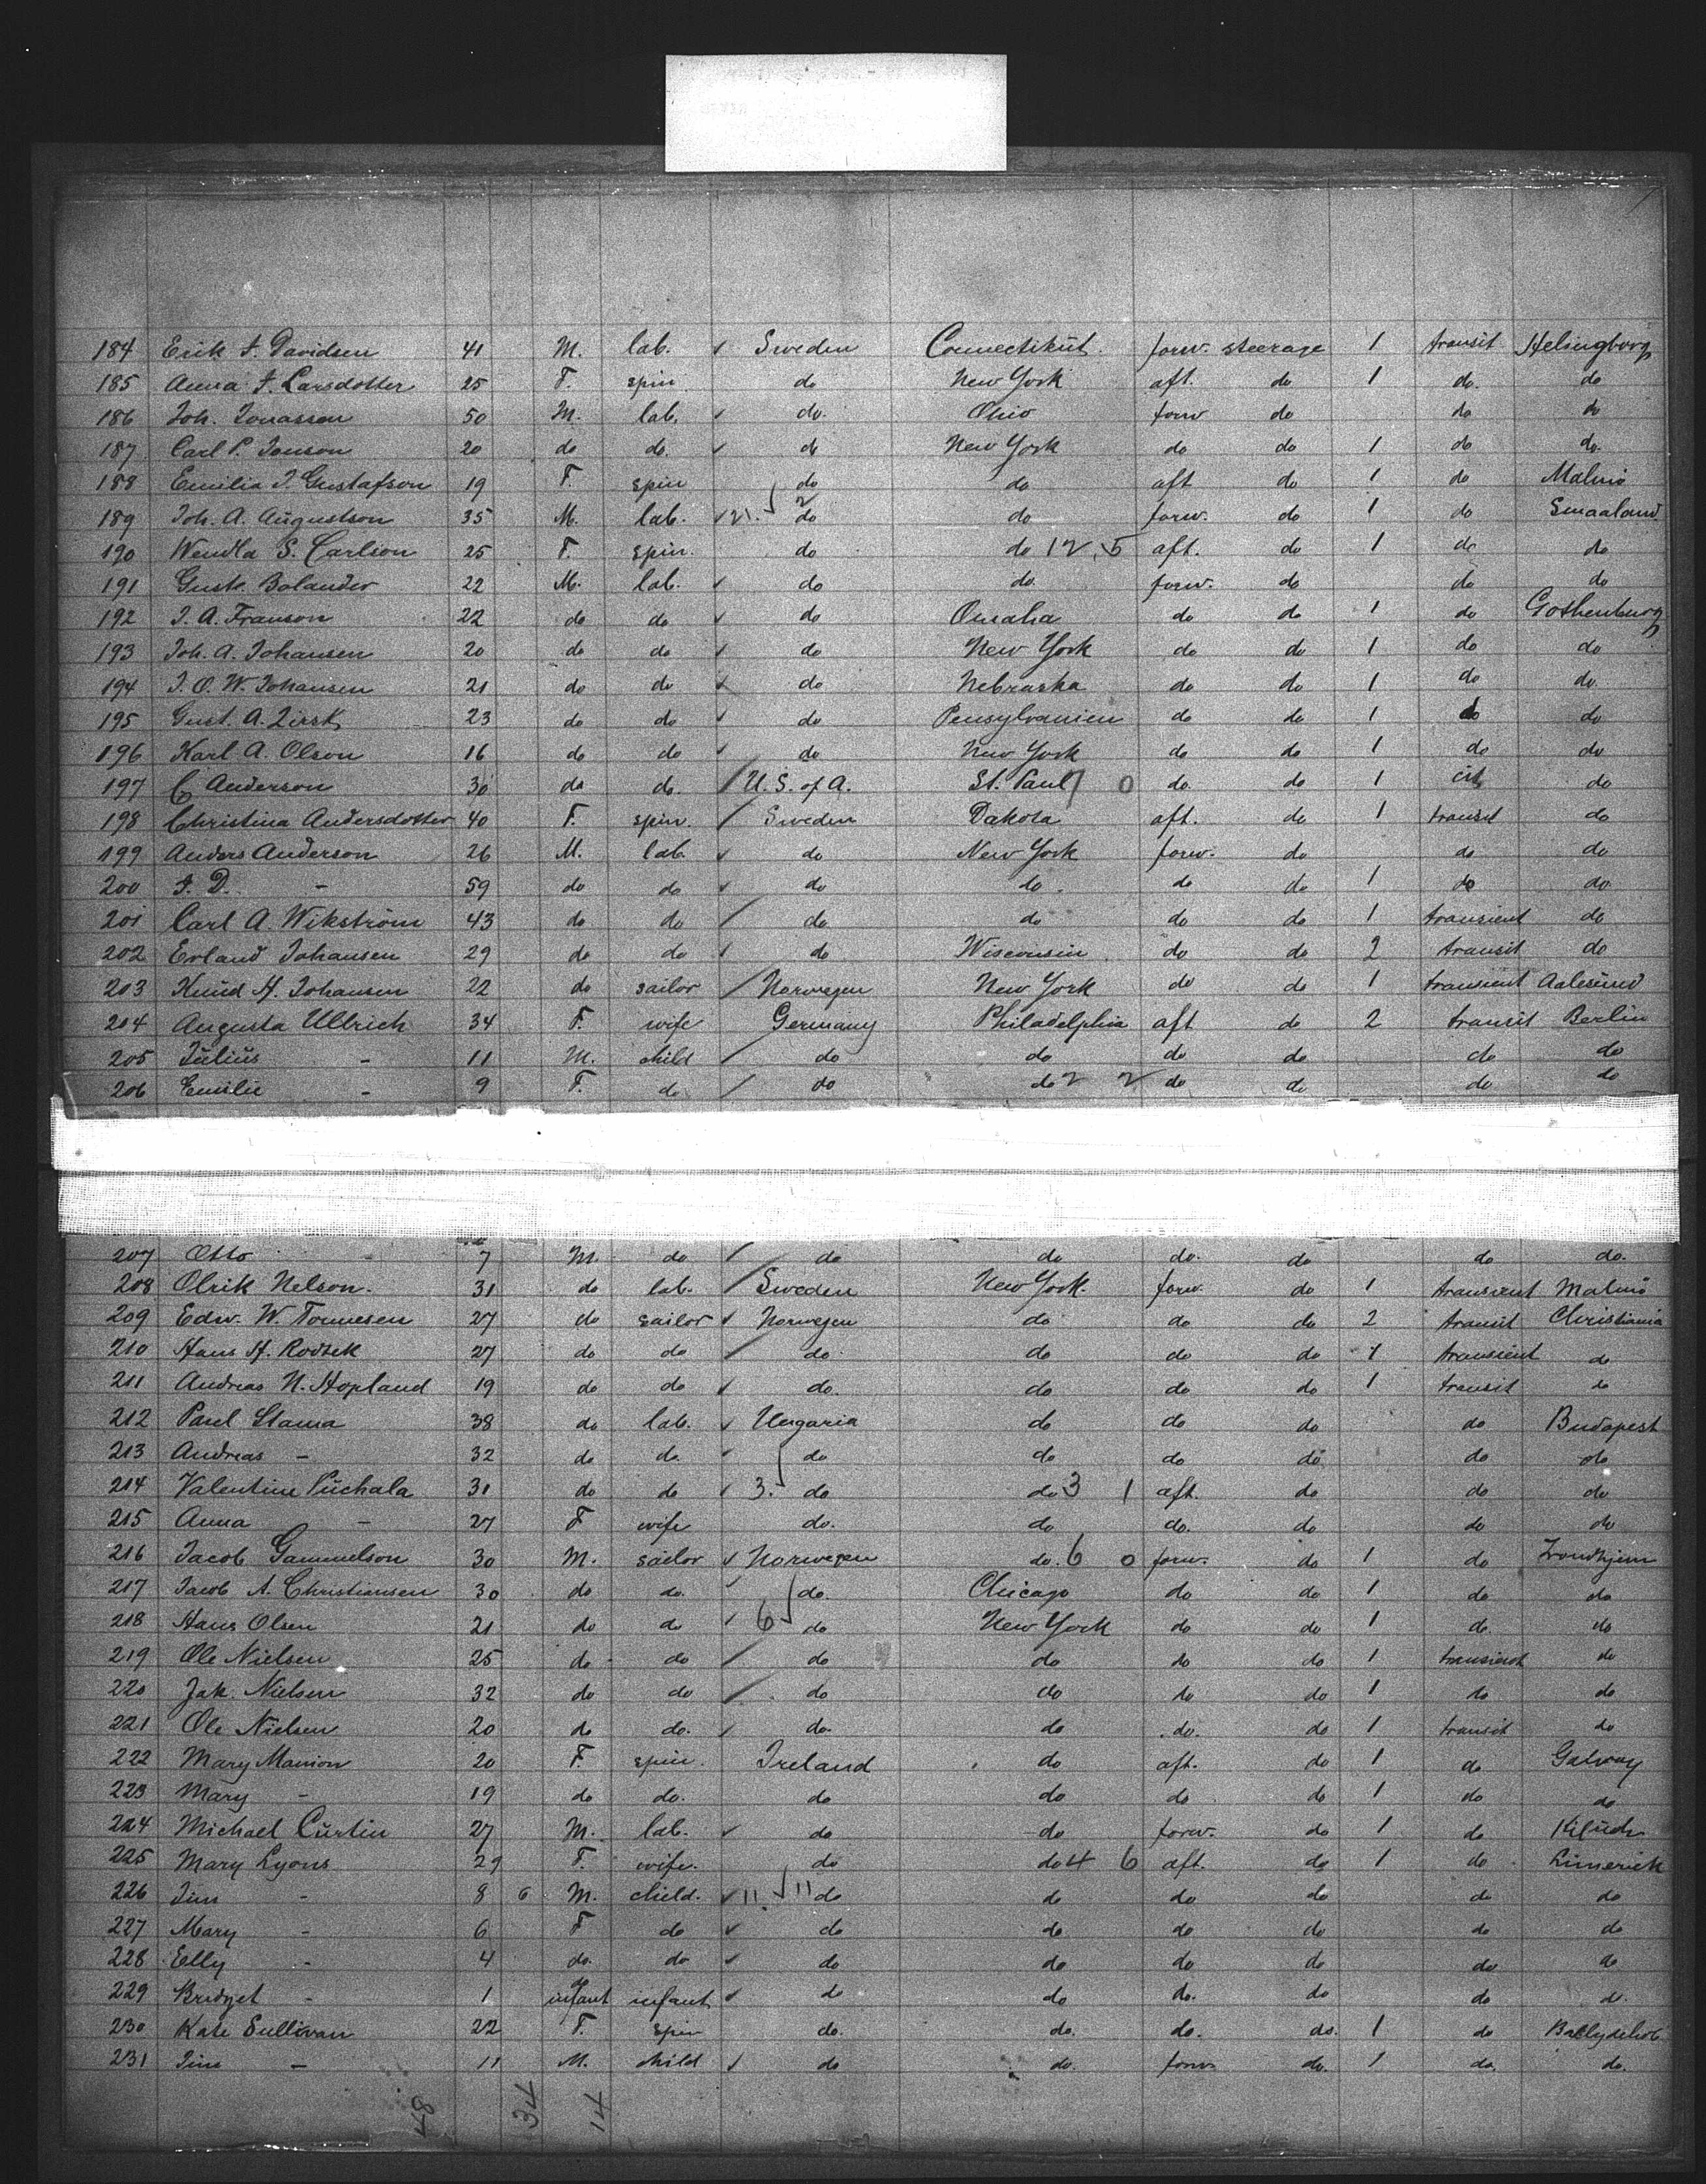 184 Erik F. Davidsen 41 M. lab. Sweden Connectikut. forw. steerage 1 transit Helingborg
185 Anna F. Larsdotter 25 F. spin do New York aft. do 1 do. do
186 Joh. Jonasson 50 M. lab. do. Ohio forw do do do
187 Carl P. Jonson 20 do do. do New York do do 1 do do.
188 Emilia J. Gustafson 19 F. spin do do aft do 1 do Malmö
189 Joh. A. Augustson 35 M. lab. 21. 2 do do forw. do 1 do Smaaland
190 Wendla S. Carlson 25 F. spin. do do 12, 5 aft. do 1 do do
191 Gust. Bolander 22 M. lab. do do. forw. do do do
192 J. A. Franson 22 do do do Omaha do do 1 do Gothenburg
193 Joh. A. Johansen 20 do do do New York do do 1 do do
194 J. O. W. Johansen 21 do do do Nebraska do do 1 do do.
195 Gust. A. 23 do do do Pensylvanien do do 1 do do
196 Karl A. Olson 16 do do do New York do do 1 do do
197 C Anderson 30 do do. U. S. of A. St. Paul 0 do. do 1 cit do
198 Christina Andersdotter 40 F. spin. Sweden Dakota aft. do 1 transit do
199 Anders Anderson 26 M. lab. do New York forw. do do do
200 F. D. - 59 do do do do. do do 1 do do
201 Carl A. Wikström 43 do do do do do do 1 transient do
202 Erland Johansen 29 do do do Wisconsin do do 2 transit do
203 Knud H. Johansen 22 do sailor Norwegen New York do do 1 transient Aalesund
204 Augusta Ullrich 34 F. wife Germany Philadelphia aft do 2 transit Berlin
205 Julius - 11 M. child do do do do do do
206 Emilie - 9 F. do do do 2 2 do do do do
207 Otto - 7 M. do do do do. do do do.
208 Olrik Nelson. 31 do lab. Sweden New York. forw. do 1 transient Malmö
209 Edw. W. Tonnesen 27 do sailor Norwegen do do do 2 transit Christiania
210 Hans H. 27 do do do. do do do 1 transient do
211 Andreas N. Hopland 19 do do do. do do do 1 transit do
212 Paul Slama 38 do lab. Ungaria do do do do Budapest
213 Andreas - 32 do do. do do do do do do
214 Valentine Puchala 31 do do 3. do do 3 1 aft. do do do
215 Anna - 27 F wife do. do do. do do do
216 Jacob Gammelson 30 M. sailor Norwegen do. 6 0 forw. do 1 do Trondhjem
217 Jacob A. Christiansen 30 do do. do. Chicago do do 1 do do
218 Hans Olsen 21 do do 6 do New York do do 1 do. do
219 Ole Nielsen 25 do do do do do do 1 transient do
220 Jak. Nielsen 32 do do do do do do 1 do do
221 Ole Nielsen 20 do do. do. do do. do 1 transit do
222 Mary Manion 20 F. spin. Ireland do aft. do 1 do Galway
223 Mary - 19 do do. do do do do 1 do do
224 Michael Curtin 27 M. lab. do do forw. do 1 do
225 Mary Lyons 29 F. wife. do do 4 6 aft. do 1 do. Limerick
226 Jim - 8 6 M. child. 11. 11 do do do do do do
227 Mary - 6 F do do do do do do do
228 Elly - 4 do. do do do do do do do
229 Bridget - 1 do infant infant do do do. do do do.
230 Kate Sullivan 22 F. spin do. do. do. do. 1 do Ballydehob
231 Jim - 11 M. child do do. forw do. 1 do. do.
48 34 14